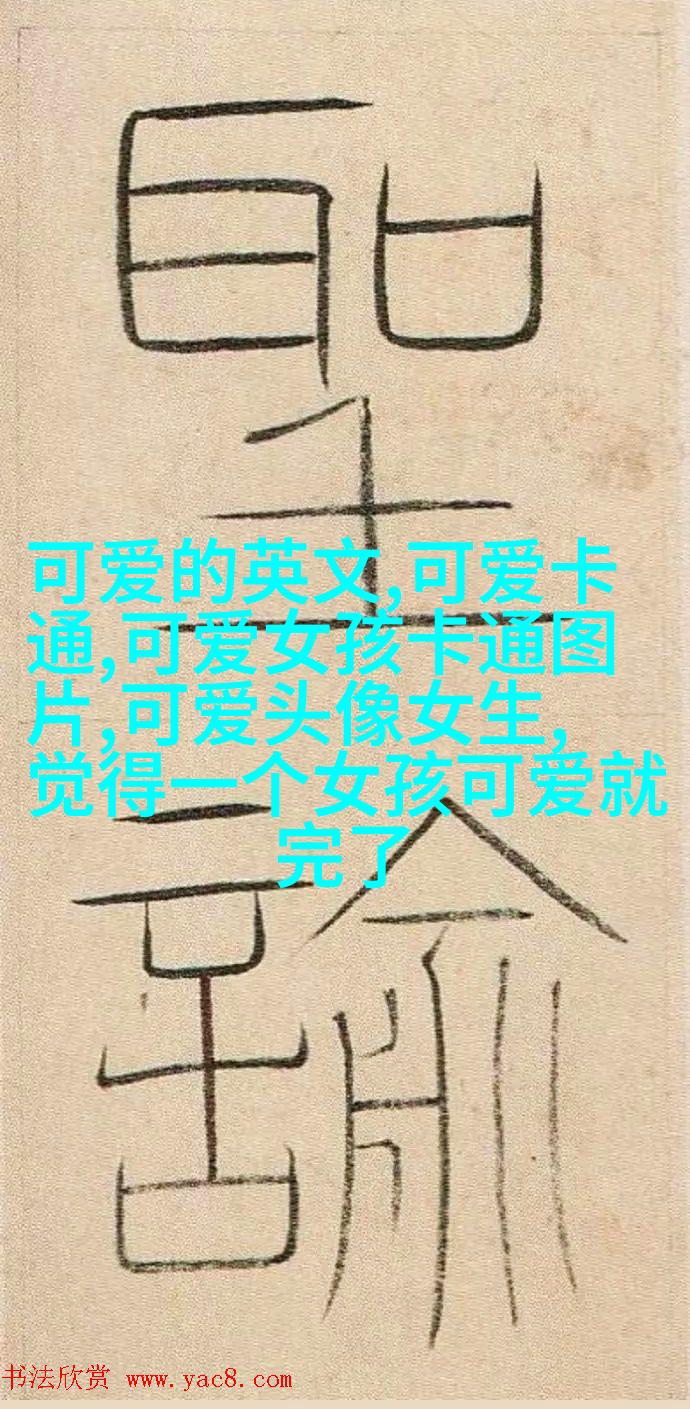 聖
諭
可爱的英文,可爱卡
通,可爱女孩卡通图
片,可爱头像女生,
觉得一个女孩可爱就
完了
书法欣赏 www.yac8.com